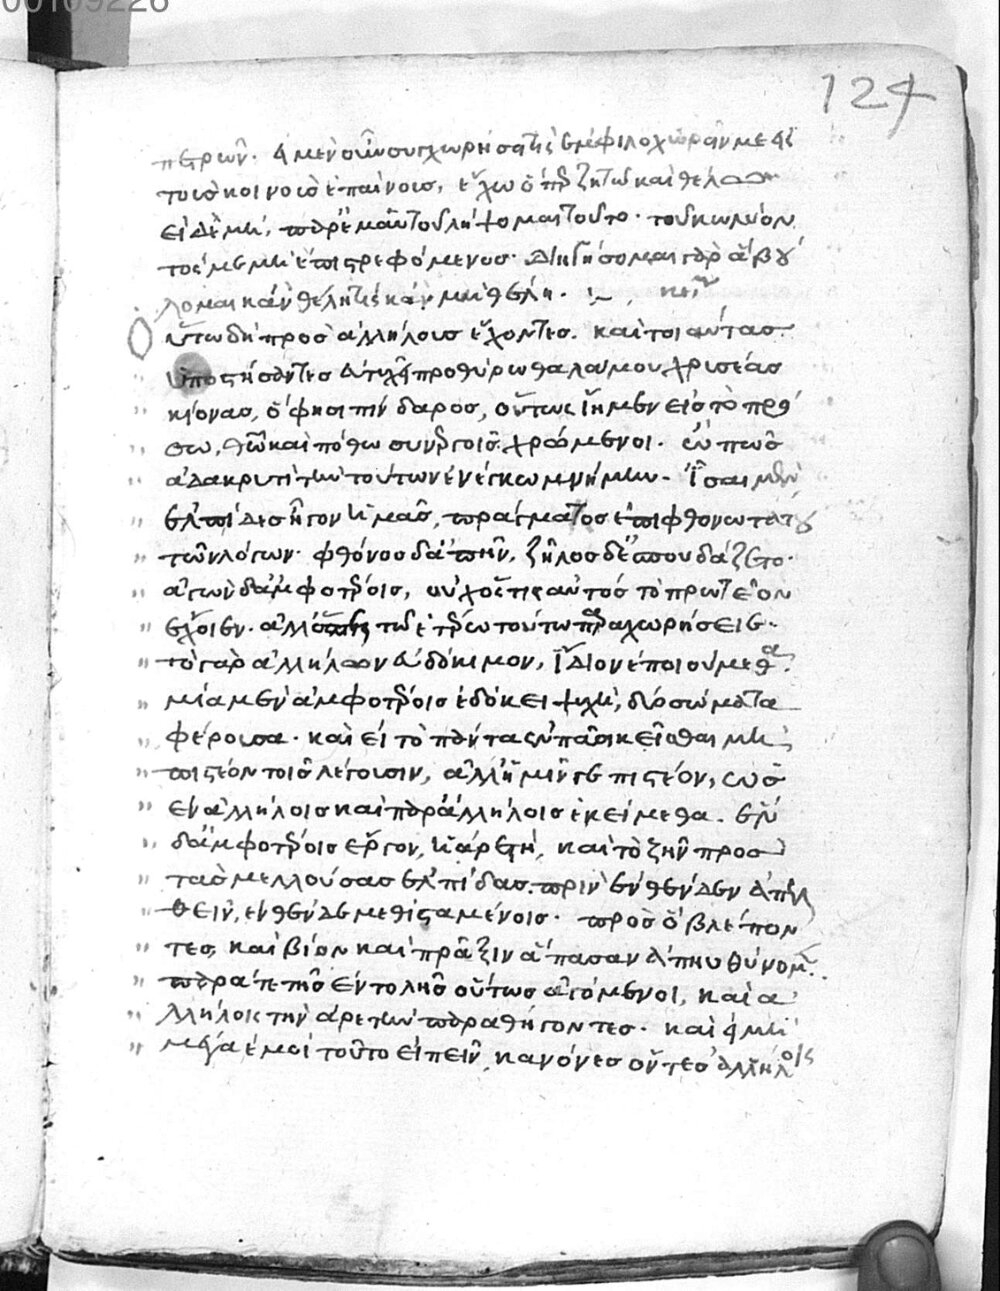 πετρῶν. εἰ μὲν οὖν συγχωρήσητέ μοι φιλοχωρεῖν με ἐν
τοῖς κοινοῖς ἐπαίνοις, ἔχω ὅπερ ζητῶ καὶ θέλω
εἰ δὲ μὴ, παρ' ἐμαυτοῦ λήψομαι τοῦτο. τοῦ κωλύον
τός με μὴ ἐπιστρεφόμενος. διηγήσομαι γὰρ ἃ βού
λομαι κἂν θέλητε κἂν μὴ θέλη.
οὕτω δὴ πρὸς ἀλλήλους ἔχοντες. καὶ τοιαύτας
ὑποστήσαντες εὐτυχεῖ προθύρω θαλάμου χρυσέας
κίονας, ὅ φησι πίνδαρος, οὕτως ᾔημεν εἰς τὸ πρό
σω, θεῶ καὶ πόθω συνεργοῖς χρώμενοι. ὢ πῶς
ἀδακρυτὶ τὴν τούτων ἐνέγκω μνήμην. ἴσαι μὲν
ἐλπίδες ἦγον ἡμᾶς, πράγματος ἐπιφθονωτάτου
τῶν λόγων. φθόνος δ' ἀπῆν, ζῆλος δ' ἐσπουδάζετο.
ἀγὼν δ' ἀμφοτέροις, οὐχ' ὅστις αὐτὸς τὸ πρωτεῖον
ἔχοιεν. ἀλλ' ὅπως τῶ ἑτέρω τούτω παραχωρήσειε.
τὸ γὰρ ἀλλήλων εὐδόκιμον, ἴδιον ἐποιούμεθα.
μία μὲν ἀμφοτέροις ἐδόκει ψυχὴ, δύο σώματα
φέρουσα. καὶ εἰ τὸ πάντα ἐν πᾶσι κεῖσθαι μὴ
πιστέον τοῖς λέγουσιν, ἀλλ' ἡμῖν γε πιστέον, ὡς
ἐν ἀλλήλοις καὶ παρ' ἀλλήλοις ἐκείμεθα. ἓν
δ' ἀμφοτέροις ἔργον, ἡ ἀρετὴ, καὶ τὸ ζῆν πρὸς
τὰς μελλούσας ἐλπίδας. πρὶν ἐνθένδεν ἀπελ
θεῖν, ἐνθένδε μεθισταμένοις. πρὸς ὃ βλέπον
τες, καὶ βίον καὶ πρᾶξιν ἅπασαν ἀπηυθύνομεν.
παρά τε τῆς ἐντολῆς οὕτως ἀγόμενοι, καὶ ἀ
λλήλοις τὴν ἀρετὴν παραθήγοντες. καὶ εἰ μὴ
μέγα ἐμοὶ τοῦτο εἰπεῖν, κανόνες ὄντες ἀλλήλοις
124
00109226